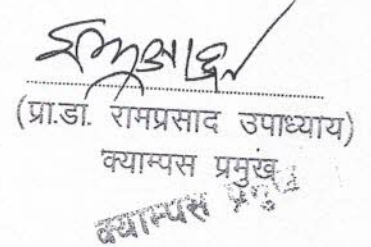 (प्रा.डा. रामप्रसाद उपाध्याय)
क्याम्पस प्रमुख
क्याम्पस प्रमुख